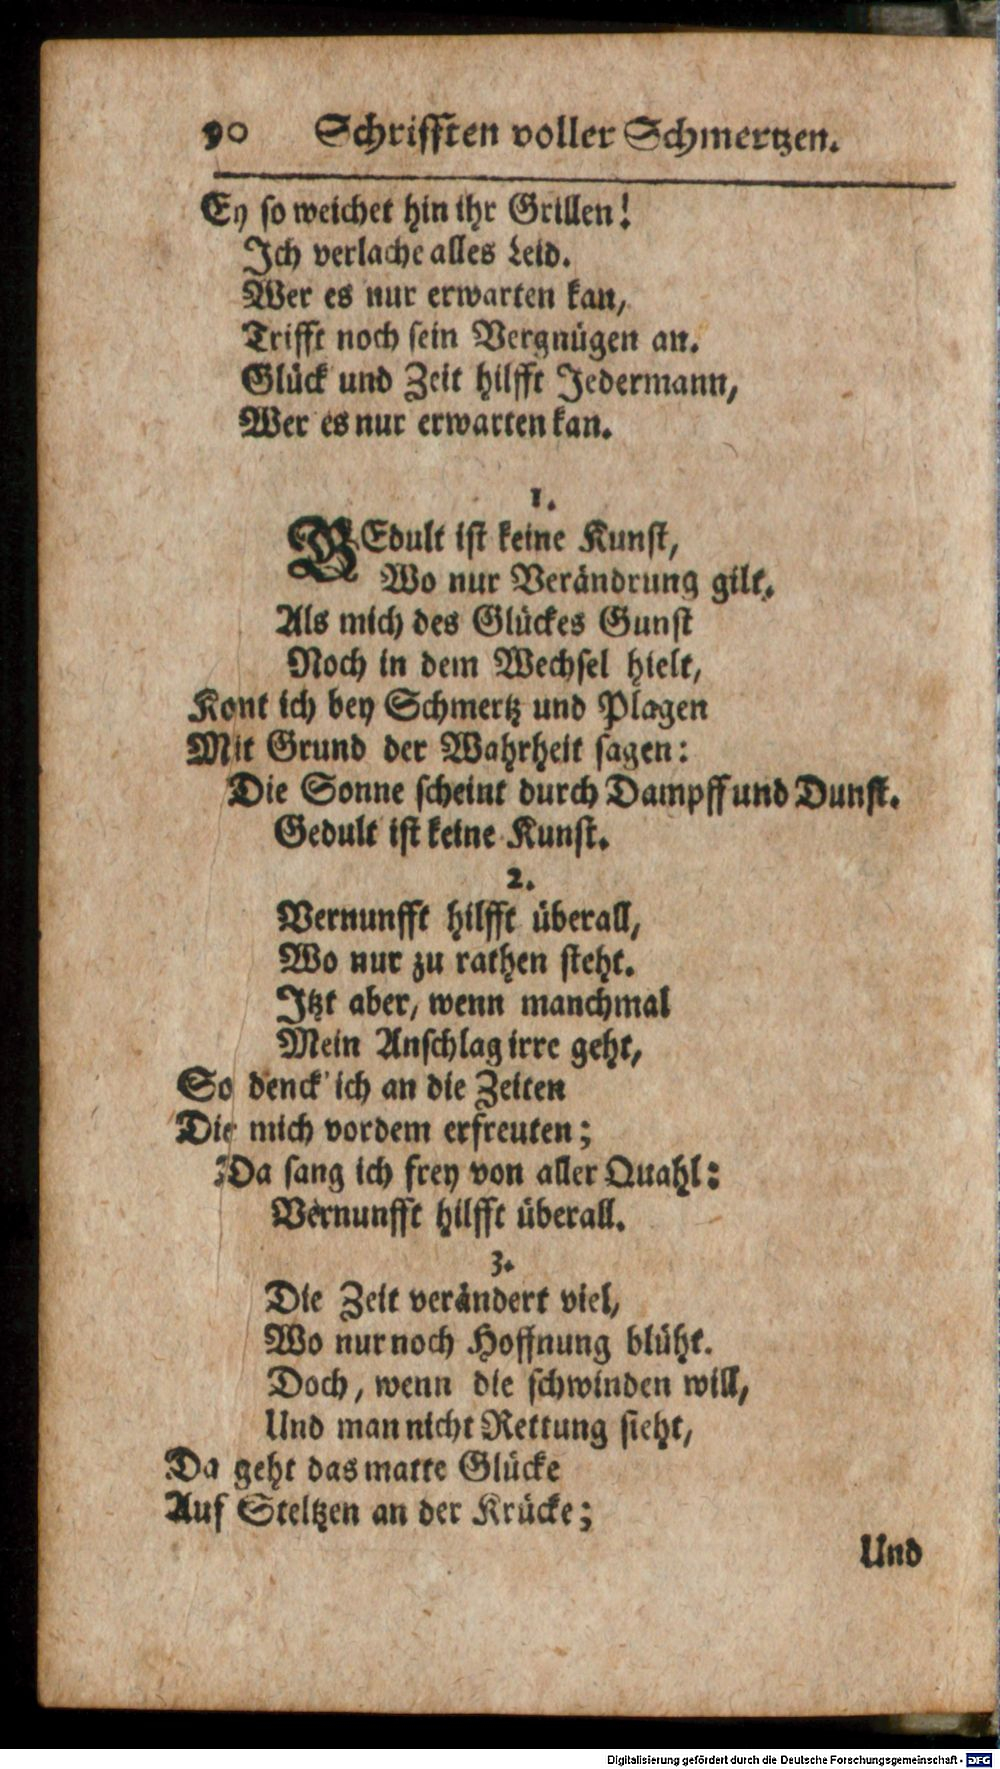 90 Schrifften voller Schmertzen.
Ey so weichet hin ihr Grillen!
Ich verlache alles Leid.
Wer es nur erwarten kan,
Trifft noch sein Vergnügen an.
Glück und Zeit hilfft Jedermann,
Wer es nur erwarten kan.
1.
GEdult ist keine Kunst,
Wo nur Verändrung gilt.
Als mich des Glückes Gunst
Noch in dem Wechsel hielt,
Kont ich bey Schmertz und Plagen
Mit Grund der Wahrheit sagen:
Die Sonne scheint durch Dampff und Dunst.
Gedult ist keine Kunst.
2.
Vernunfft hilfft überall,
Wo nur zu rathen steht.
Itzt aber, wenn manchmal
Mein Anschlag irre geht,
So denck' ich an die Zeiten
Die mich vordem erfreuten;
Da sang ich frey von aller Quahl:
Vernunfft hilfft überall.
3.
Die Zeit verändert viel,
Wo nur noch Hoffnung blüht.
Doch, wenn die schwinden will,
Und man nicht Rettung sieht,
Da geht das matte Glücke
Auf Steltzen an der Krücke;
Und
Digitalisierung gefördert durch die Deutsche Forschungsgemeinschaft - DFG